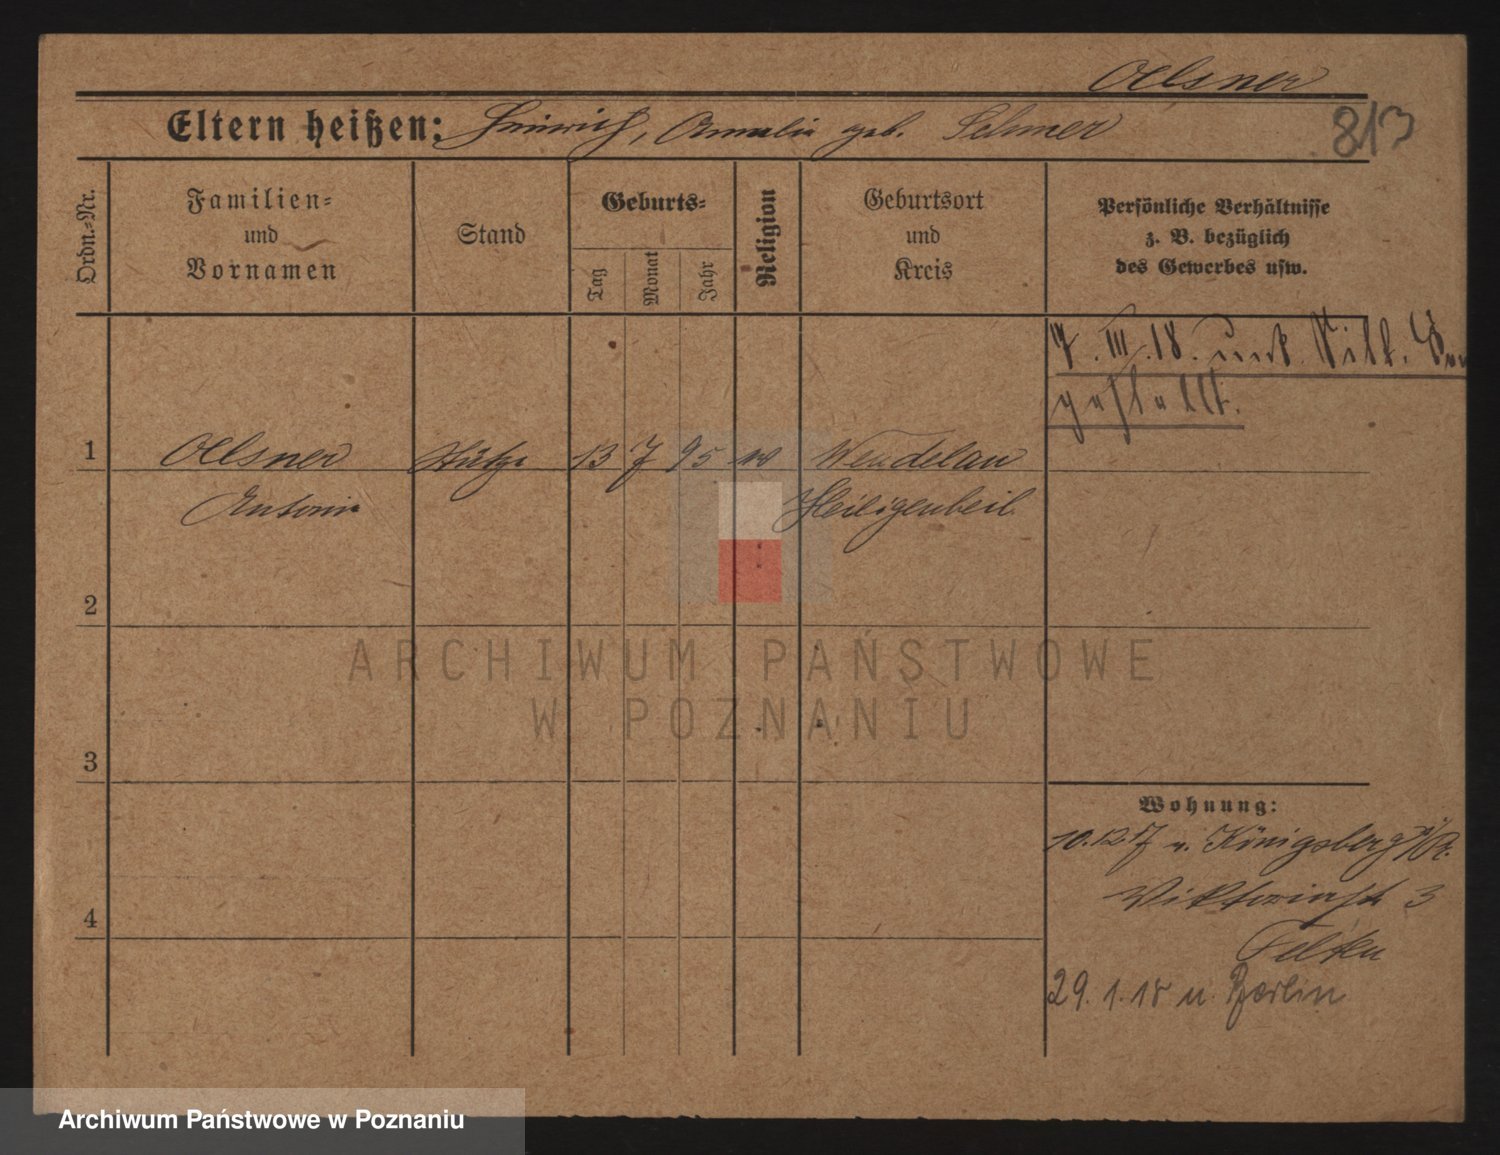 Oelsner
Eltern heißen: Heinrich, Amalie geb. Sehmer
813
Ordn.=Nr.
Familien=
und
Vornamen
Stand
Geburts=
Tag
Monat
Jahr
Religion
Geburtsort
und
Kreis
Persönliche Verhältnisse
z. B. bezüglich
des Gewerbes usw.
7. III. 18.
1
Oelsner Stütze 13 7 95
Antonie Heiligenbeil
2
ARCHIWUM PAŃSTWOWE
W POZNANIU
3
Wohnung:
10.12.17 v. Königsberg i/Pr.
Viktoriastr 3
29.1.18 n. Berlin
4
Archiwum Państwowe w Poznaniu